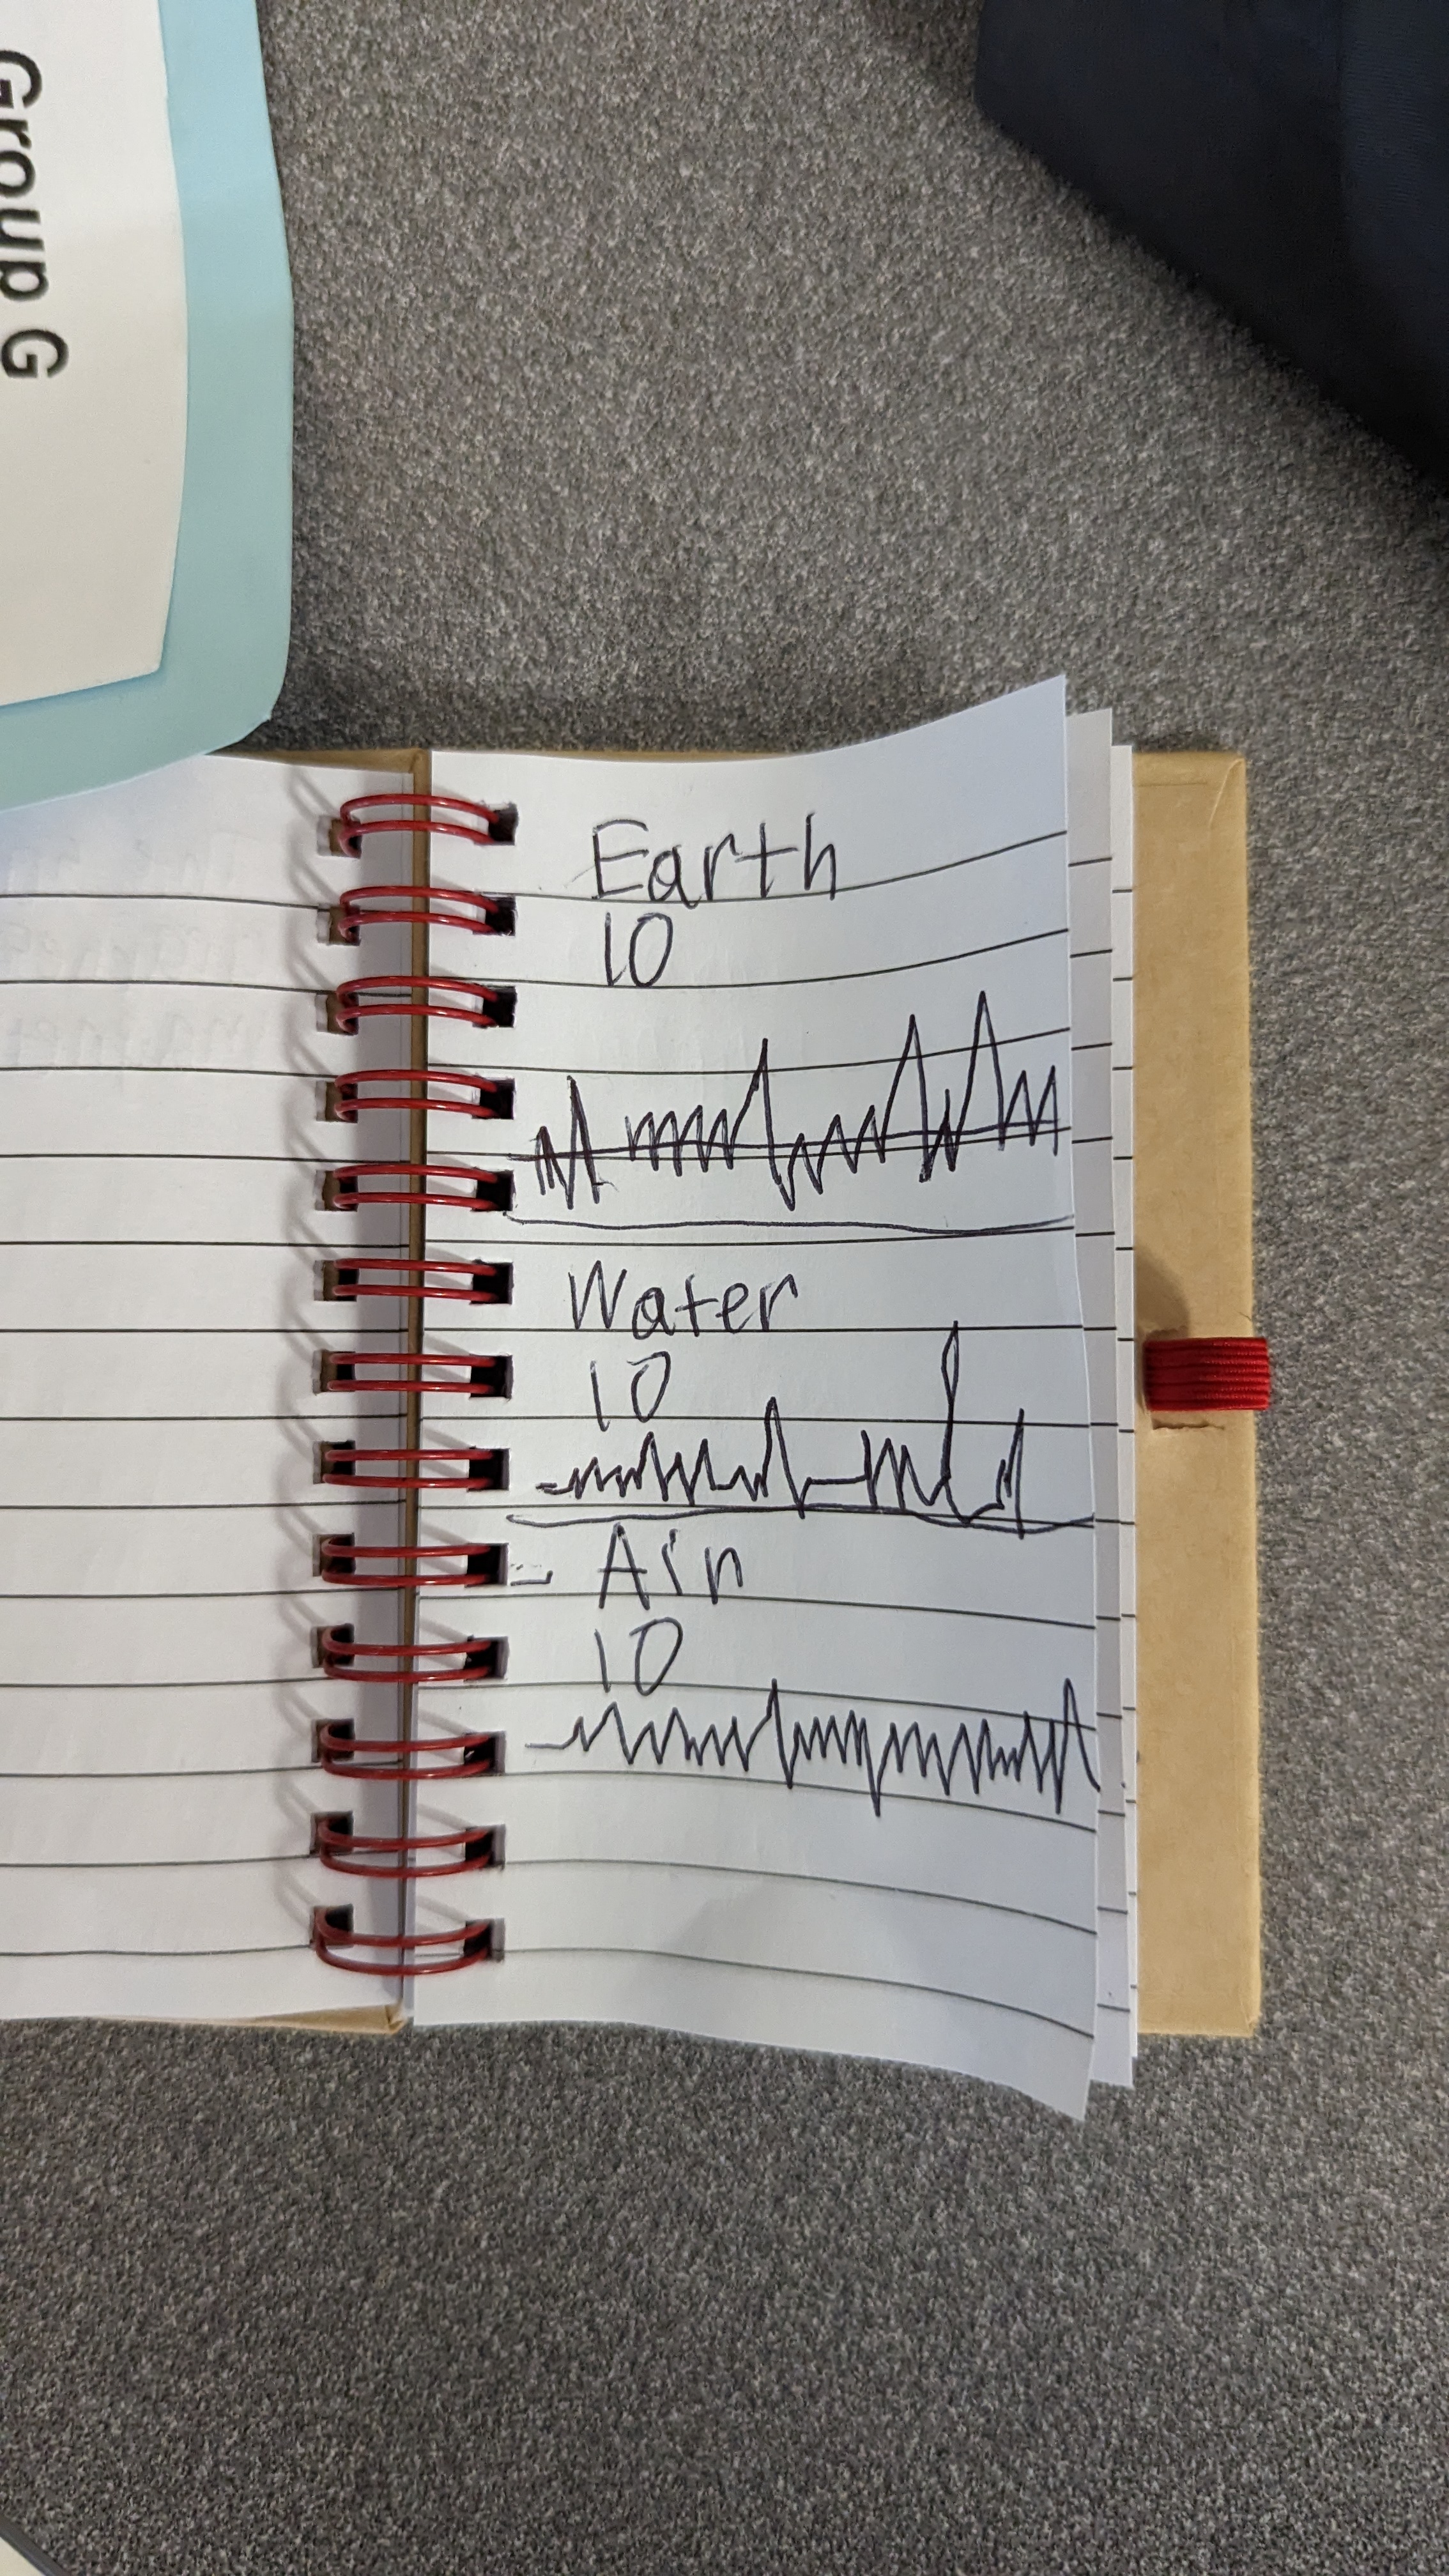 Group G
Earth
10
Water
10
Air
10